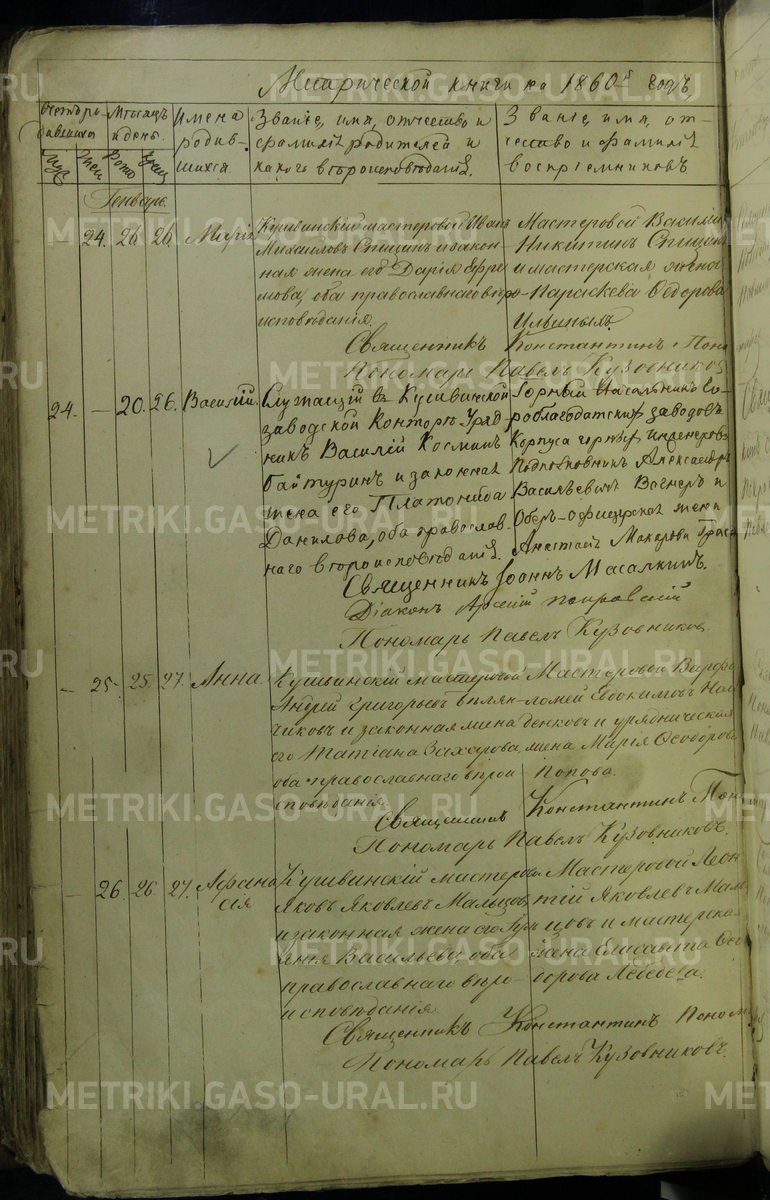 Метрической книги на 1860й годъ,
Счетъ ро-
дившихся
Муж. Жен.
Мѣсяцъ
и день.
Рожд. Крещ.
Имена
родив-
шихся.
Званіе, имя, отчество и
фамилія родителей и
какого вѣроисповѣданія.
Званіе, имя, от-
чество и фамилія
воспріемниковъ
Генварь.
24. 26 26. Марія
Кушвинскій мастеровой Иванъ
Михаиловъ Спицинъ и закон-
ная жена его Дарія Ефре
мова, оба православнаго вѣро-
исповѣданія.
Мастеровой Василій
Никитинъ Спицинъ
и мастерская жена
Параскева Ѳедорова
Ильиныхъ.
Священникъ Константинъ Поно
Пономарь Павелъ Кузовников
24. — 20. 26. Василій.
Служащій въ Кушвинской
заводской Конторѣ Уряд-
никъ Василій Косминъ
Байтуринъ и законная
жена его Платонида
Данилова, оба православ-
наго вѣроисповѣданія.
Горный Начальникъ Го-
роблагодатскихъ заводовъ
Корпуса горныхъ инженеровъ
Подполковникъ Александръ
Васильевичъ Вагнеръ и
Оберъ-офицерская жена
Анастасія Макарова
Священникъ Іоаннъ Масалкинъ.
Діаконъ Арсеній Покровскій
Пономарь Павелъ Кузовников.
— 25. 25 27. Анна
Кушвинскій мастеровой
Андрей Григорьевъ
чиковъ и законная жена
его Татіана Захарова,
оба православнаго вѣрои
сповѣданія.
Мастеровой Варфо
ломей Евдокимовъ
денковъ и урядническая
жена Марія Ѳеодорова
Попова.
Священникъ Константинъ Пон
Пономарь Павелъ Кузовниковъ.
— 26. 26 27. Афана
сія
Кушвинскій мастеровой
Яковъ Яковлевъ Мальцовъ
и законная жена его
Васильева, оба
православнаго вѣро
исповѣданія
Мастеровой Леон
тій Яковлевъ Маль
цовъ и мастерска-
жена Елисавета Ѳео
дорова
Священникъ Константинъ Поном
Пономарь Павелъ Кузовниковъ.
METRIKI.GASO-URAL.RU